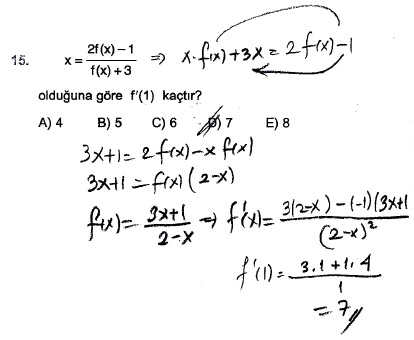 15. x = (2f(x) – 1)/(f(x) + 3) ⇒ x·f(x)+3x = 2f(x)-1
olduğuna göre f'(1) kaçtır?
A) 4 B) 5 C) 6 D) 7 E) 8
3x+1 = 2f(x) - x f(x)
3x+1 = f(x)(2-x)
f(x) = (3x+1)/(2-x) ⇒ f'(x) = 3(2-x) - (-1)(3x+1/(2-x)²
f'(1) = (3.1+1.4)/1
= 7